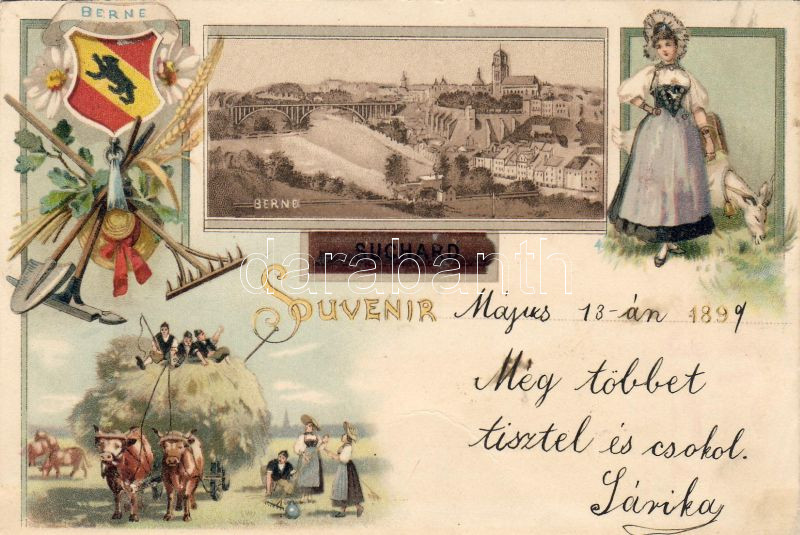 BERNE
BERNE
SUCHARD
darabanth
SOUVENIR Május 13-án 1899
Még többet
tisztel és csokol.
Sárika